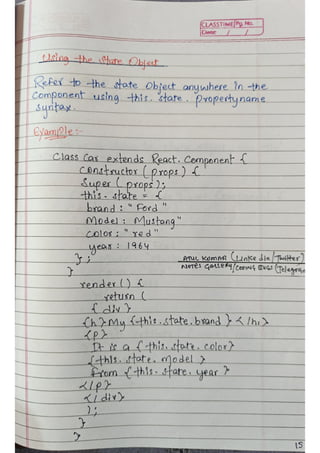 CLASSTIME Pg. No.
Date / /
Using the State Object
Refer to the state Object anywhere in the
component using this.state.propertyname
syntax.
Example:-
Class Car extends React.Component {
Constructor (props) {
Super (props);
this.state = {
brand: "Ford"
Model: Mustang"
Color: "red"
year: 1964
};
ATUL KUMAR (Linkedin/Twitter)
}
NOTES GALLERY/CODING BUGS (Telegram
render () {
return (
{ div }
{h} My {this.state.brand } </h1>
<p>
It is a {this.state.color}
{this.state.model }
from {this.state.year }
</p>
</div>
);
}
}
15